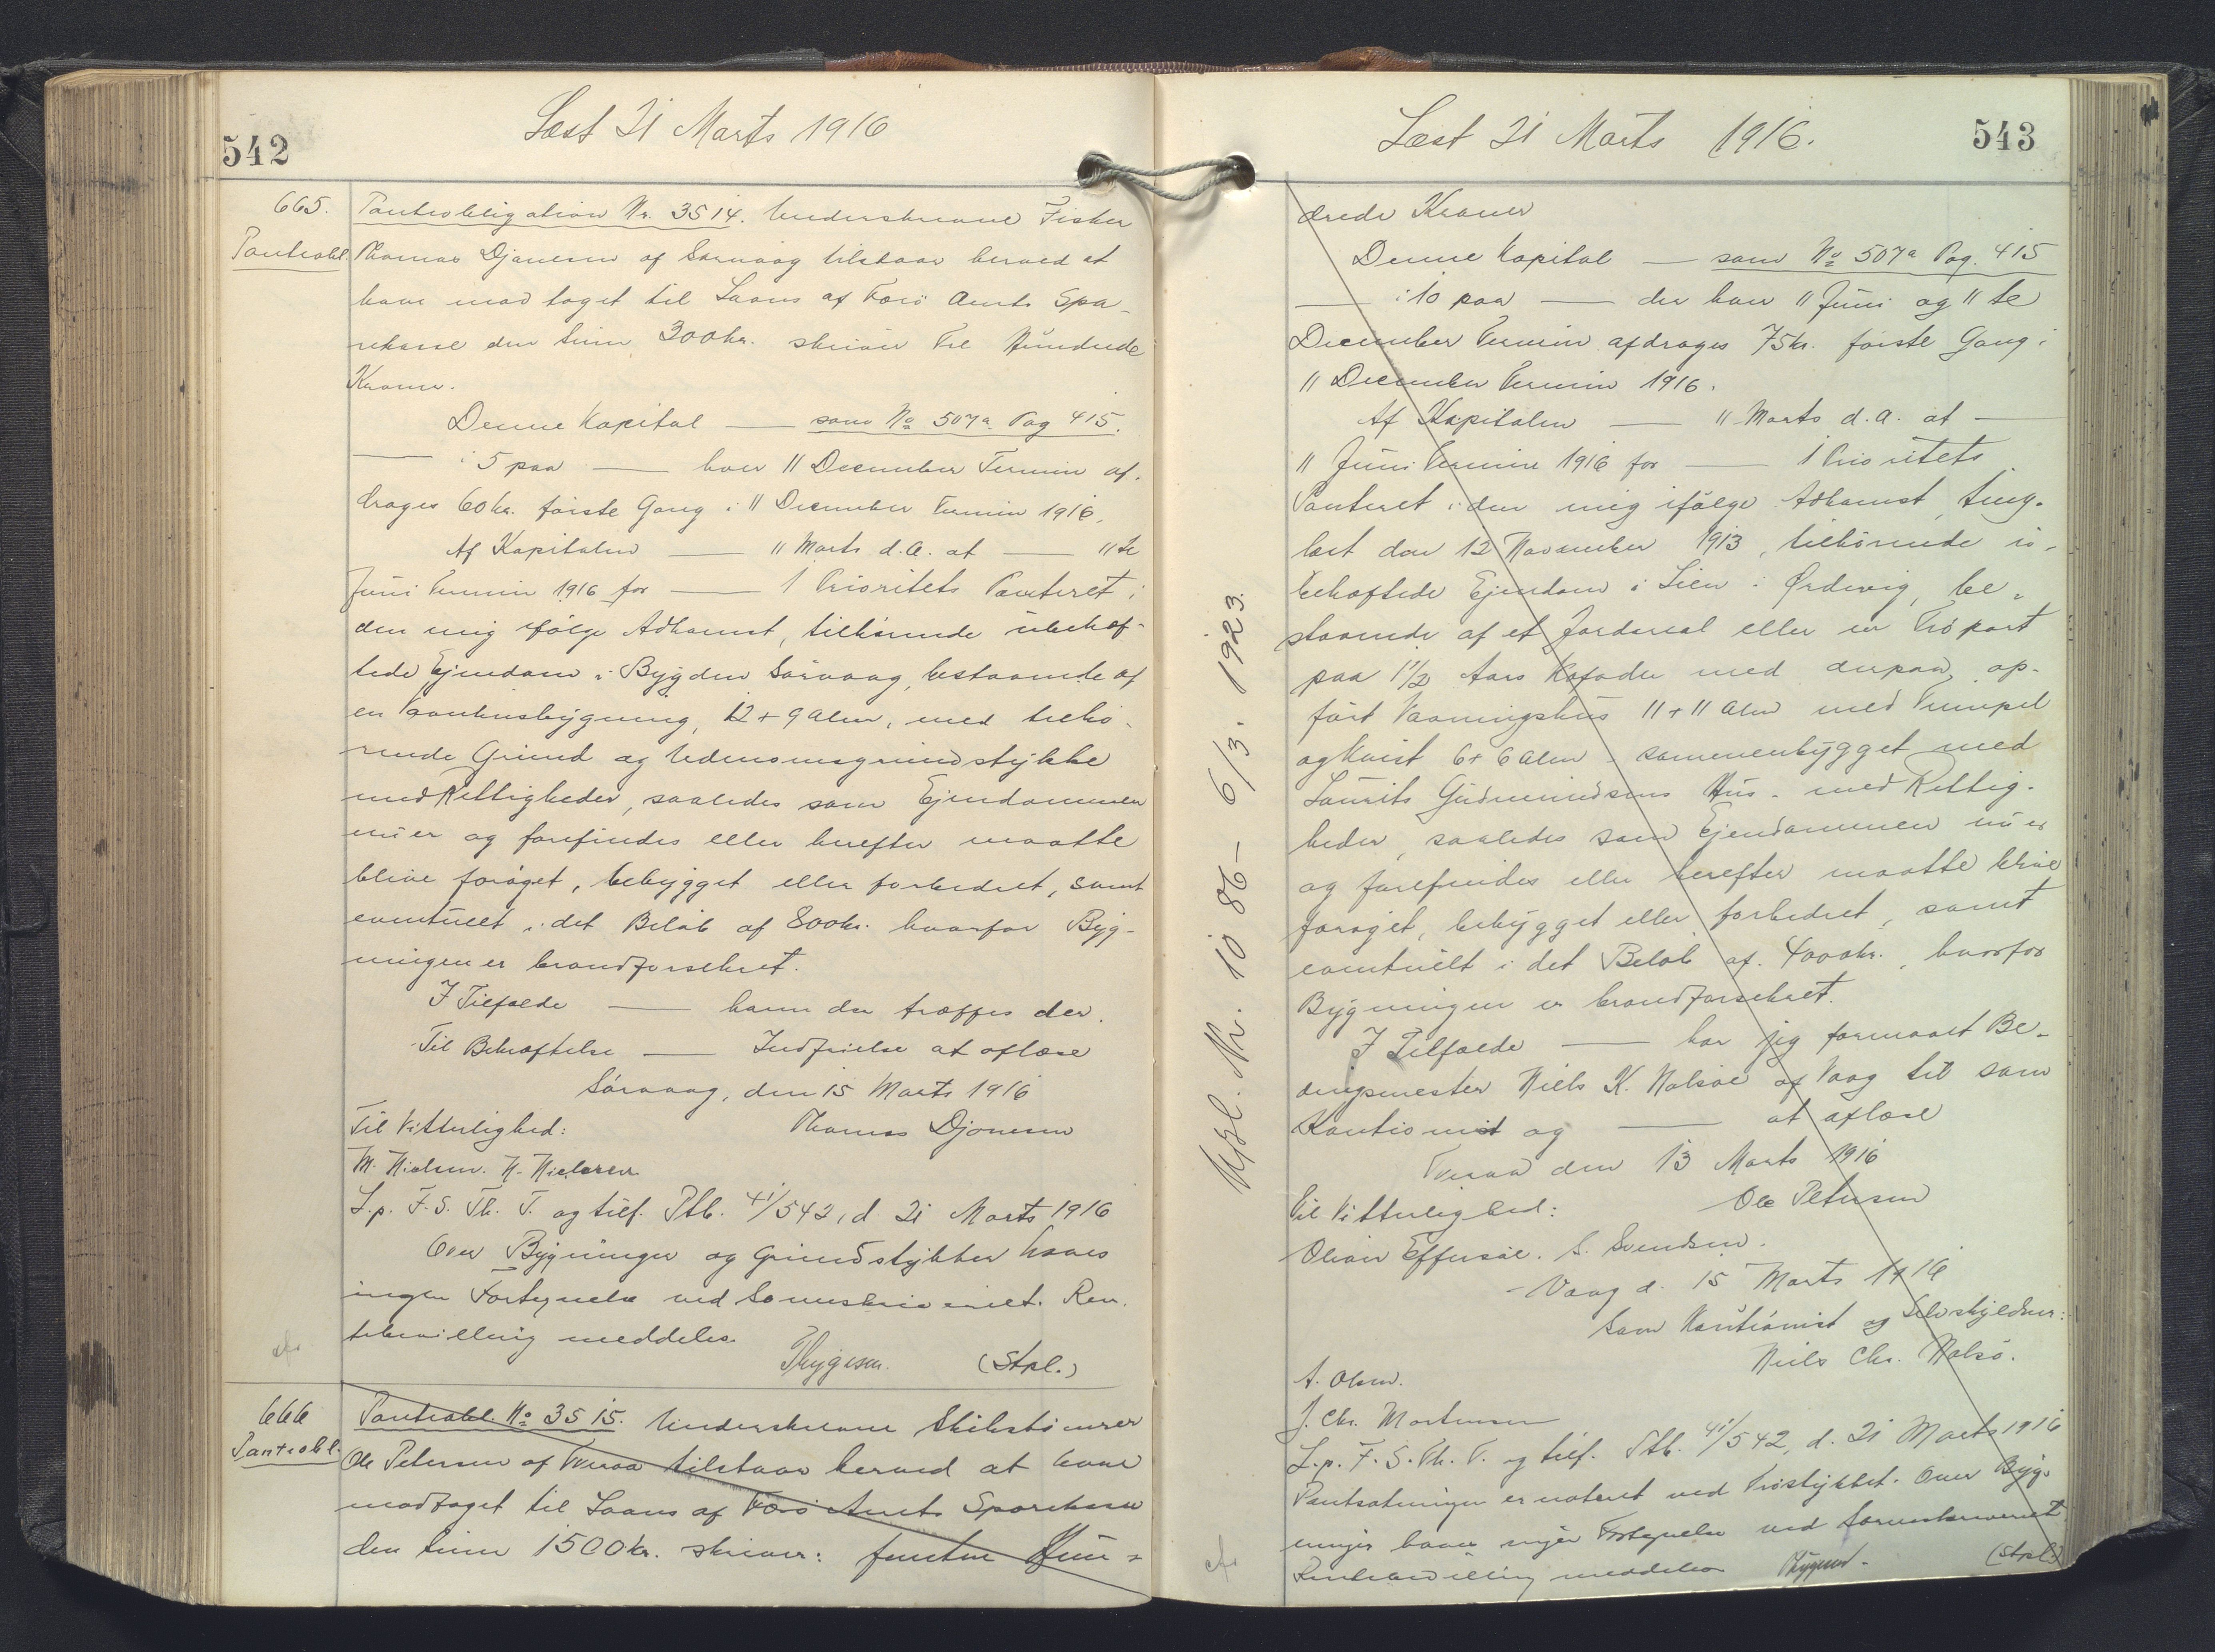 542
Læst 21 Marts 1916
665.
Panteobl.
Panteobligation Nr. 3514. Underskrevne Fisker
Thomas Djonesen af Sørvaag tilstaar herved at
have modtaget til Laans af Færø Amts Spa-
rekasse den Sum 300kr. skriver Tre Hundrede
Kroner.
Denne Kapital — som No 507a Pag 415.
— i 5 paa — hver 11 December Termin af-
drages 60kr. første Gang i 11 December Termin 1916.
Af Kapitalen — 11 Marts d.A. at — 11te
Juni Termin 1916 for — 1 Prioritets Panteret i
den mig ifølge Adkomst, tilhørende ubehæf-
tede Ejendom i Bygden Sørvaag, bestaaende af
en Vaahusbygning, 12 + 9 Alen, med tilhø-
rende Grund og Udenomsgrundstykke
med Rettigheder, saaledes som Ejendommen
nu er og forefindes eller herefter maatte
blive forøget, bebygget eller forbedret, samt
eventuelt i det Beløb af 800kr. hvorfor Byg-
ningen er brandforsikret.
I Tilfælde — kann der træffes der.
Til Bekræftelse — Indfrielse at aflæse
Sørvaag, den 15 Marts 1916
Til Vitterlighed: Thomas Djonesen
M. Nielsen. N. Nielsen
L.p. F.S. Th. T. og tilf. Ptb. 41/542, d 21 Marts 1916
Over Bygninger og Grundstykker haves
ingen Fortegnelse ved Sorenskriveriet. Ren-
tebevilling meddeles.
Thygesen. (Stpl.)
666
Panteobl.
Panteobl. No 3515. Underskrevne Skibstømrer
Ole Petersen af Tveraa tilstaar herved at have
modtaget til Laans af Færø Amts Sparekasse
den Sum 1500kr. skriver: femten Hun-
Læst 21 Marts 1916.
543
drede Kroner
Denne Kapital — som No 507a Pag. 415
— i 10 paa — der hver 11 Juni og 11te
December Termin afdrages 75kr. første Gang i
11 December Termin 1916.
Af Kapitalen — 11 Marts d.A. at —
11 Juni Termin 1916 for — 1 Prioritets
Panteret i den mig ifølge Adkomst, ting-
læst den 12 November 1913, tilhørende u-
behæftede Ejendom i Lien i Ørdevig, be-
staaende af et Jordareal eller en Trøpart
paa 1 1/2 Aars Kofoder med derpaa op-
ført Vaaningshus 11 + 11 Alen med Tempel
og Kvist 6 + 6 Alen - sammenbygget med
Laurits Gudmundsens Hus - med Rettig-
heder, saaledes som Ejendommen nu er
og forefindes eller herefter maatte blive
forøget, bebygget eller forbedret, samt
eventuelt i det Beløb af 4000kr., hvorfor
Bygningen er brandforsikret.
I Tilfælde — har jeg formaaet Be-
dingsmester Niels K. Nolsøe af Vaag til som
Kautionist og — at aflæse
Tveraa den 13 Marts 1916
Til Vitterlighed: Ole Petersen
Oliver Effersøe. S. Svendsen.
Vaag d. 15 Marts 1916
Som Kautionist og Selvskyldner:
Niels Chr. Nolsø.
A. Olsen.
J. Chr. Mortensen
L.p. F.S. Th. T. og tilf. Ptb. 41/542, d. 21 Marts 1916
Pantsætningen er noteret ved Trøstykket. Over Byg-
ninger haves ingen Fortegnelse ved Sorenskriveriet
Rentebevilling meddeles Thygesen. (Stpl.)
Udsl. Nr. 1086 - 6/3. 1923.